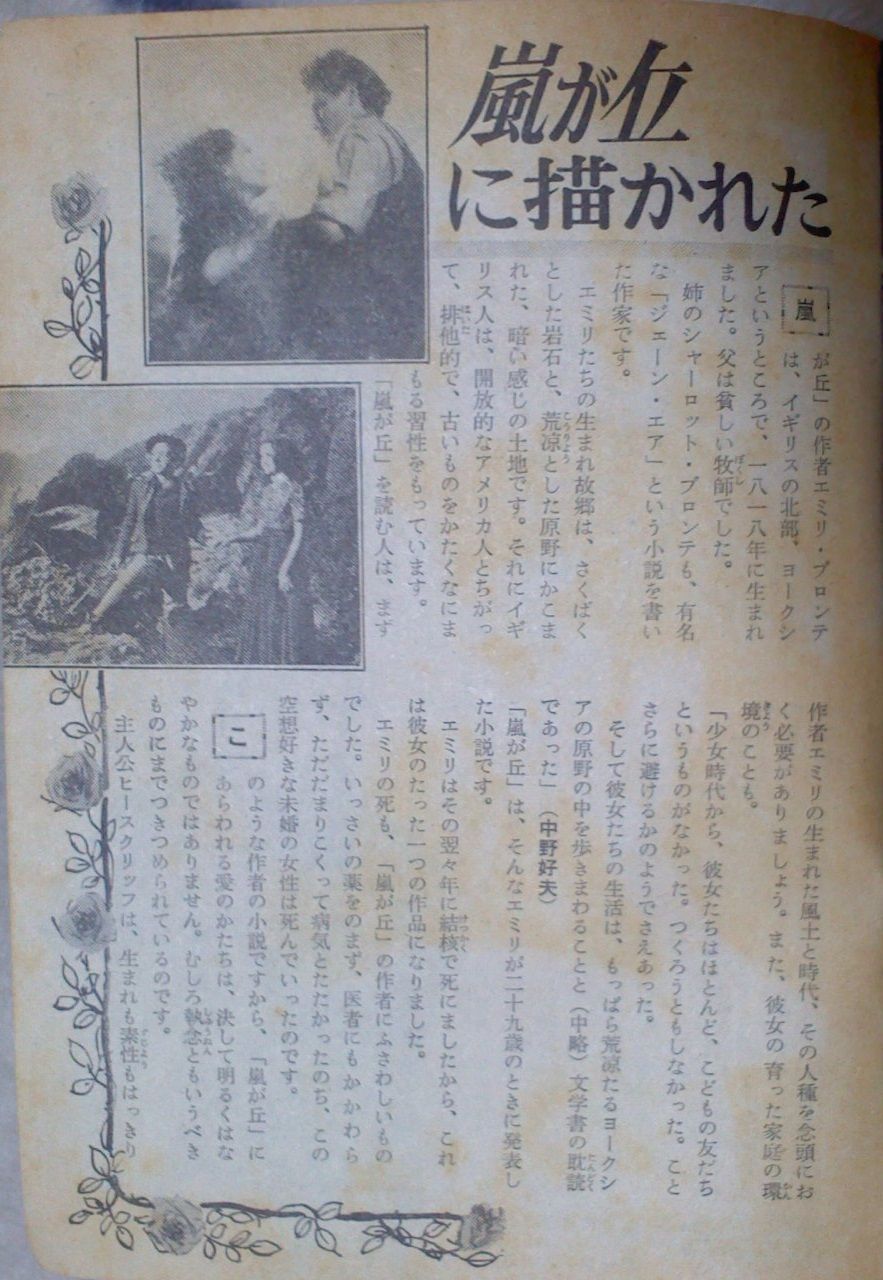 嵐が丘
に描かれた
嵐
が丘」の作者エミリ・ブロンテ
は、イギリスの北部、ヨークシ
アというところで、一八一八年に生まれ
ました。父は貧しい牧師でした。
姉のシャーロット・ブロンテも、有名
な「ジェーン・エア」という小説を書い
た作家です。
エミリたちの生まれ故郷は、さくばく
とした岩石と、荒凉とした原野にかこま
れた、暗い感じの土地です。それにイギ
リス人は、開放的なアメリカ人とちがっ
て、排他的で、古いものをかたくなにま
もる習性をもっています。
「嵐が丘」を読む人は、まず
作者エミリの生まれた風土と時代、その人種を念頭にお
く必要がありましょう。また、彼女の育った家庭の環
境のことも。
「少女時代から、彼女たちはほとんど、こどもの友だち
というものがなかった。つくろうともしなかった。こと
さらに避けるかのようでさえあった。
そして彼女たちの生活は、もっぱら荒凉たるヨークシ
アの原野の中を歩きまわることと（中略）文学書の耽読
であった」（中野好夫）
「嵐が丘」は、そんなエミリが二十九歳のときに発表し
た小説です。
エミリはその翌々年に結核で死にましたから、これ
は彼女のたった一つの作品になりました。
エミリの死も、「嵐が丘」の作者にふさわしいもの
でした。いっさいの薬をのまず、医者にもかかわら
ず、ただだまりこくって病気とたたかったのち、この
空想好きな未婚の女性は死んでいったのです。
こ
のような作者の小説ですから、「嵐が丘」に
あらわれる愛のかたちは、決して明るくはな
やかなものではありません。むしろ執念ともいうべき
ものにまでつきつめられているのです。
主人公ヒースクリッフは、生まれも素性もはっきり